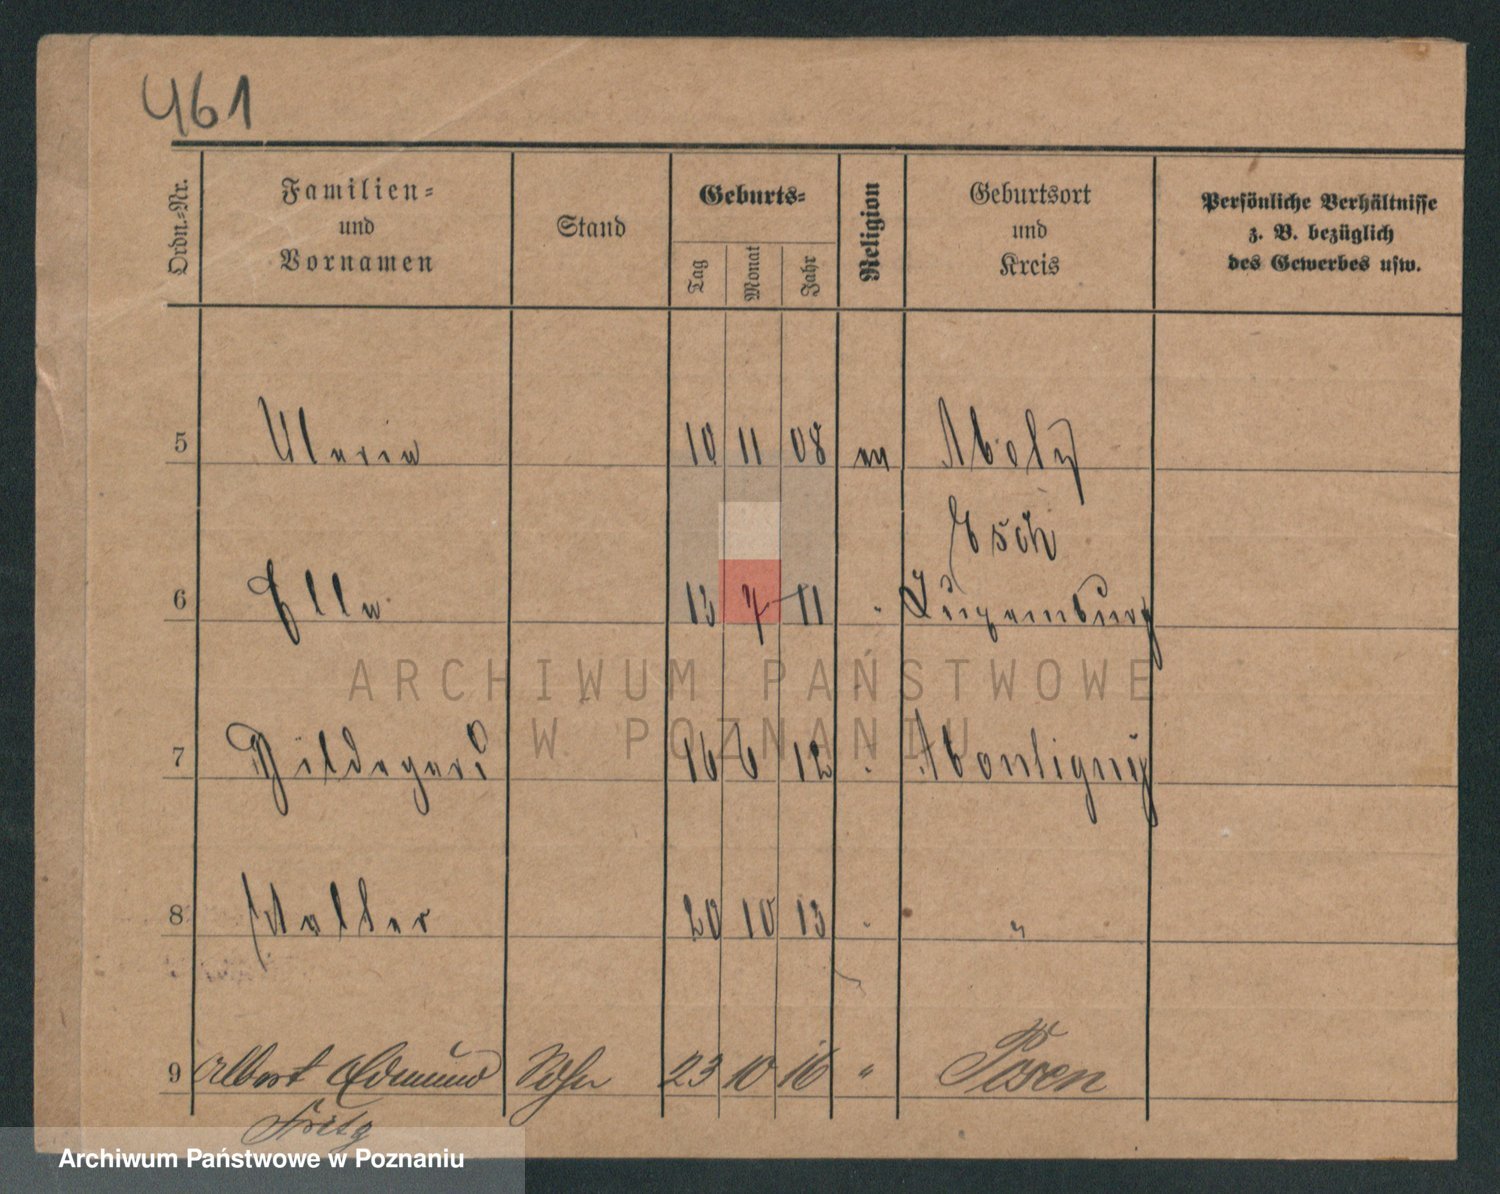 461
Ordn.-Nr.
Familien-
und
Vornamen
Stand
Geburts-
Tag
Monat
Jahr
Religion
Geburtsort
und
Kreis
Persönliche Verhältnisse
z. B. bezüglich
des Gewerbes usw.
5 Maria 10 11 08
Esch
6 Ella 13 7 11 " Luxemburg
ARCHIWUM PAŃSTWOWE
W POZNANIU
7 Hildegard 16 6 12 " Montigny
8 Walter 20 10 13 " "
9 Albert Edmund Sohn 23 10 16 " Posen
Fritz
Archiwum Państwowe w Poznaniu